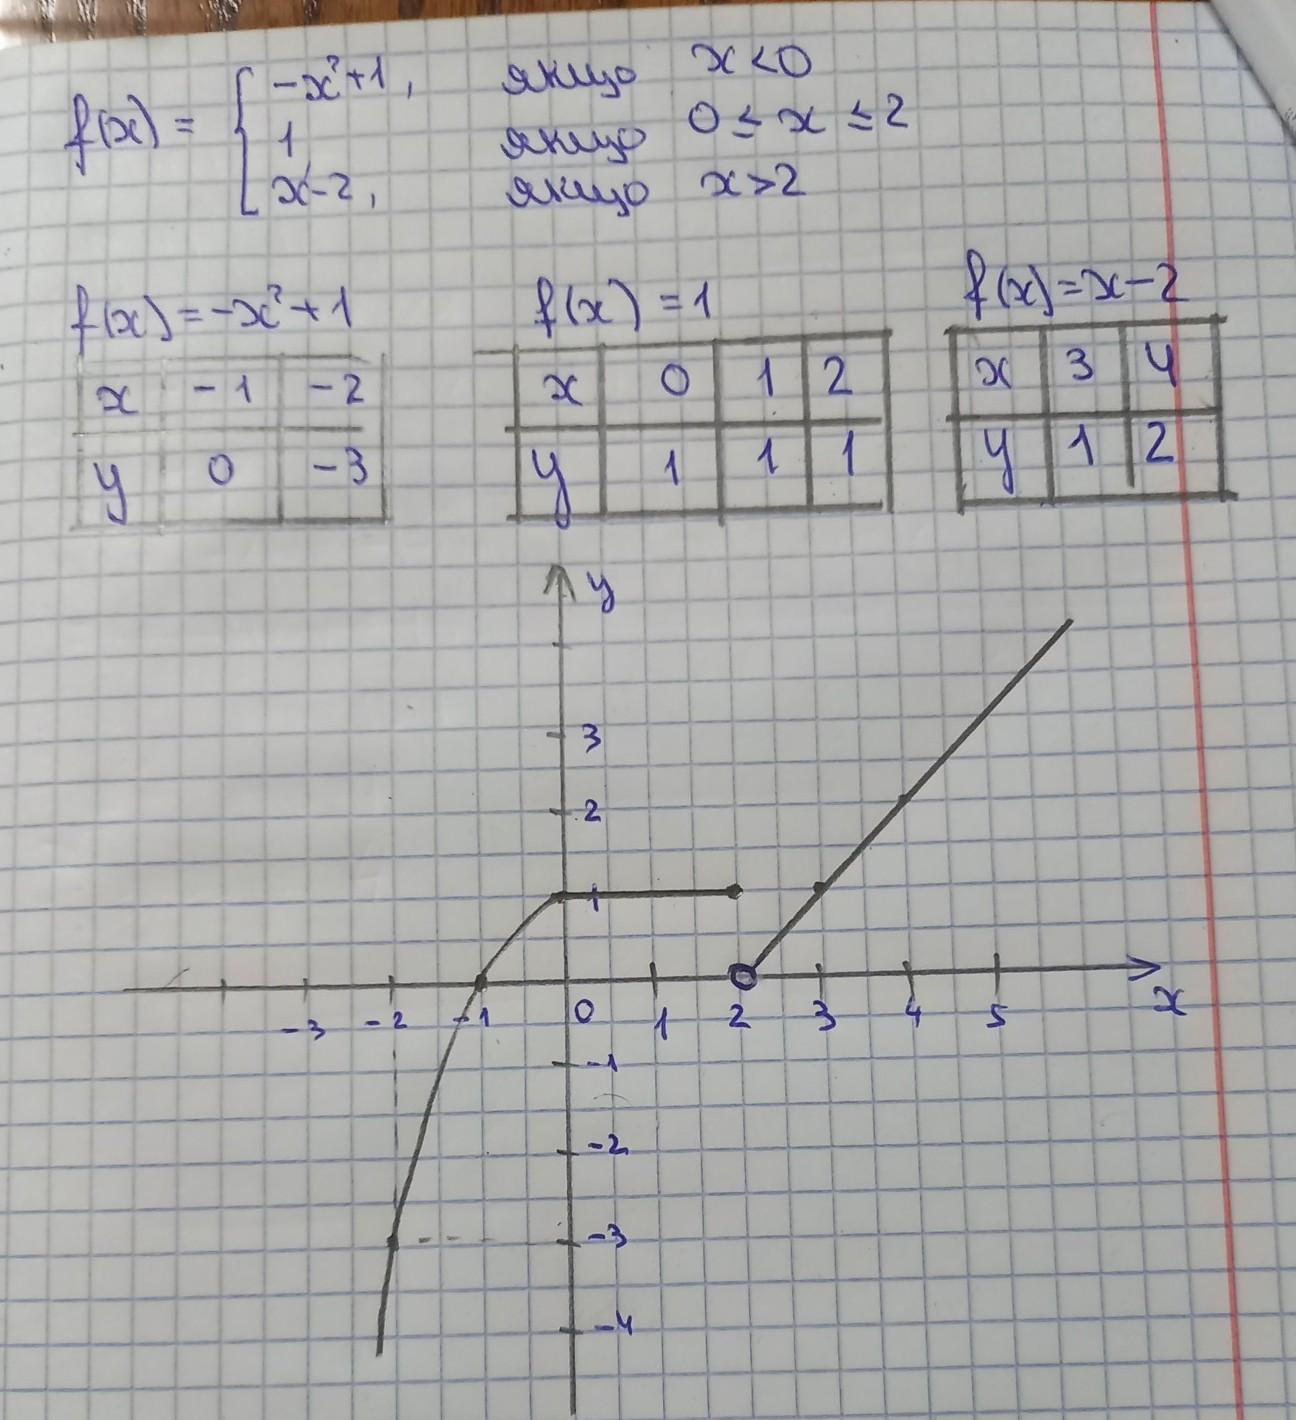 f(x) = { -x²+1, якщо x<0
1 якщо 0 ≤ x ≤ 2
x-2, якщо x>2
f(x)=-x²+1
x -1 -2
y 0 -3
f(x)=1
x 0 1 2
y 1 1 1
f(x)=x-2
x 3 4
y 1 2
y
3
2
1
-3 -2 -1 0 1 2 3 4 5 x
-1
-2
-3
-4